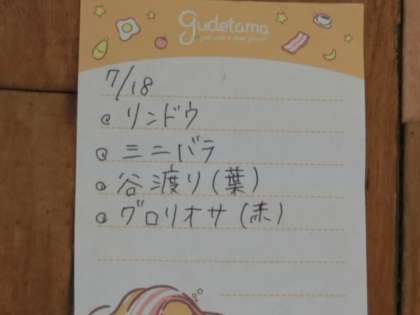 gudetama
7/18
@リンドウ
@ミニバラ
@谷渡り(葉)
@グロリオサ(赤)